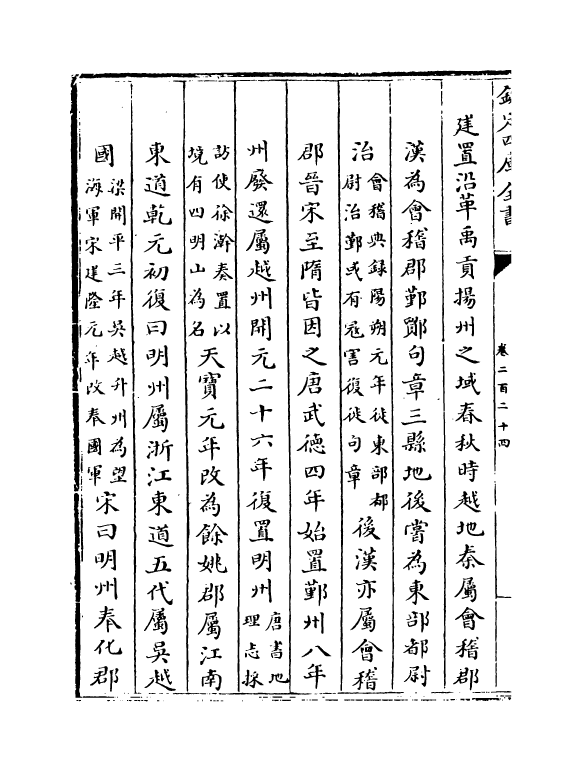 欽定四庫全書
卷二百二十四
建置沿革禹貢揚州之域春秋時越地秦屬會稽郡
漢為會稽郡鄞鄮句章三縣地後嘗為東部都尉
治會稽典録陽朔元年徙東部都
尉治鄞或有冦害復徙句章後漢亦屬會稽
郡晉宋至隋皆因之唐武德四年始置鄞州八年
州廢還屬越州開元二十六年復置明州唐書地
理志採
訪使徐澣奏置以
境有四明山為名天寶元年改為餘姚郡屬江南
東道乾元初復曰明州屬浙江東道五代屬吳越
國梁開平三年吳越升州為望
海軍宋建隆元年改奉國軍宋曰明州奉化郡